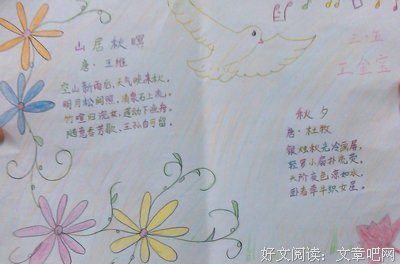 山居秋暝
唐·王维
空山新雨后,天气晚来秋。
明月松间照,清泉石上流。
竹喧归浣女,莲动下渔舟。
随意春芳歇,王孙自可留。
三小五
王金宝
秋夕
唐·杜牧
银烛秋光冷画屏,
轻罗小扇扑流萤。
天阶夜色凉如水,
卧看牵牛织女星。
好文阅读:文章吧网